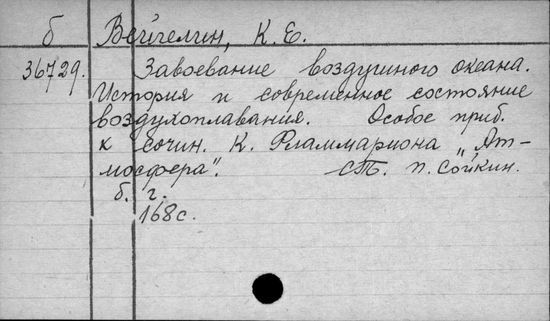 б Вейгелин, К. Е.
36729. Завоевание воздушного океана.
История и современное состояние
воздухоплавания. Особое приб.
к сочин. К. Фламмариона „Ат-
мосфера". СПб. П. Сойкин.
б. г.
168 с.